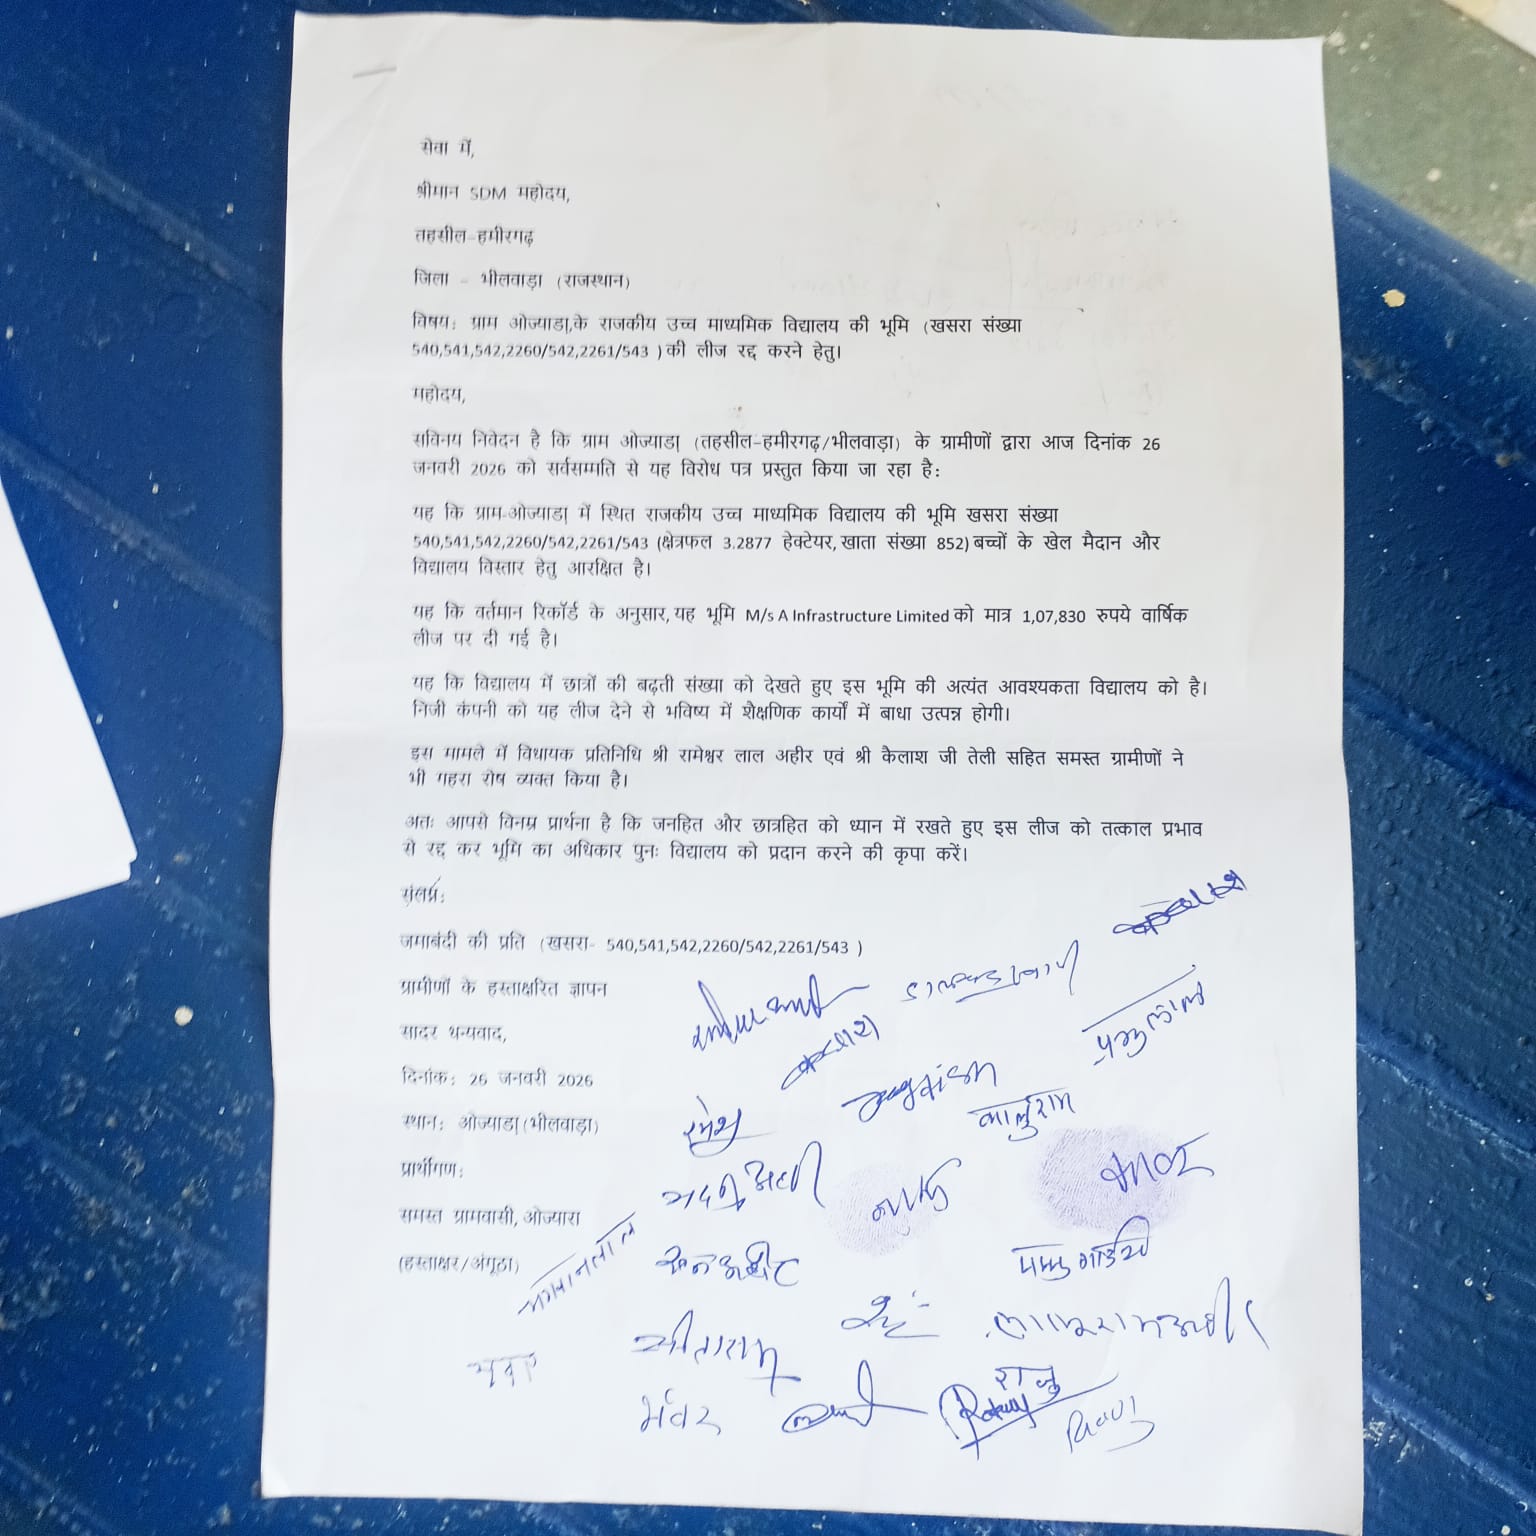 सेवा में,
श्रीमान SDM महोदय,
तहसील-हमीरगढ़
जिला - भीलवाड़ा (राजस्थान)
विषय: ग्राम ओज्याडा,के राजकीय उच्च माध्यमिक विद्यालय की भूमि (खसरा संख्या
540,541,542,2260/542,2261/543 ) की लीज रद्द करने हेतु।
महोदय,
सविनय निवेदन है कि ग्राम ओज्याडा (तहसील-हमीरगढ़/भीलवाड़ा) के ग्रामीणों द्वारा आज दिनांक 26
जनवरी 2026 को सर्वसम्मति से यह विरोध पत्र प्रस्तुत किया जा रहा है:
यह कि ग्राम-ओज्याडा में स्थित राजकीय उच्च माध्यमिक विद्यालय की भूमि खसरा संख्या
540,541,542,2260/542,2261/543 (क्षेत्रफल 3.2877 हेक्टेयर, खाता संख्या 852) बच्चों के खेल मैदान और
विद्यालय विस्तार हेतु आरक्षित है।
यह कि वर्तमान रिकॉर्ड के अनुसार, यह भूमि M/s A Infrastructure Limited को मात्र 1,07,830 रुपये वार्षिक
लीज पर दी गई है।
यह कि विद्यालय में छात्रों की बढ़ती संख्या को देखते हुए इस भूमि की अत्यंत आवश्यकता विद्यालय को है।
निजी कंपनी को यह लीज देने से भविष्य में शैक्षणिक कार्यों में बाधा उत्पन्न होगी।
इस मामले में विधायक प्रतिनिधि श्री रामेश्वर लाल अहीर एवं श्री कैलाश जी तेली सहित समस्त ग्रामीणों ने
भी गहरा रोष व्यक्त किया है।
अतः आपसे विनम्र प्रार्थना है कि जनहित और छात्रहित को ध्यान में रखते हुए इस लीज को तत्काल प्रभाव
से रद्द कर भूमि का अधिकार पुनः विद्यालय को प्रदान करने की कृपा करें।
संलग्न:
जमाबंदी की प्रति (खसरा- 540,541,542,2260/542,2261/543 )
ग्रामीणों के हस्ताक्षरित ज्ञापन
सादर धन्यवाद,
कैलाश
प्रभुलाल
दिनांक: 26 जनवरी 2026
स्थान: ओज्याडा (भीलवाड़ा)
रमेश
कालुराम
प्रार्थीगण:
समस्त ग्रामवासी, ओज्यारा
(हस्ताक्षर/अंगूठा)
भगवानलाल
सीताराम
भंवर
राजु